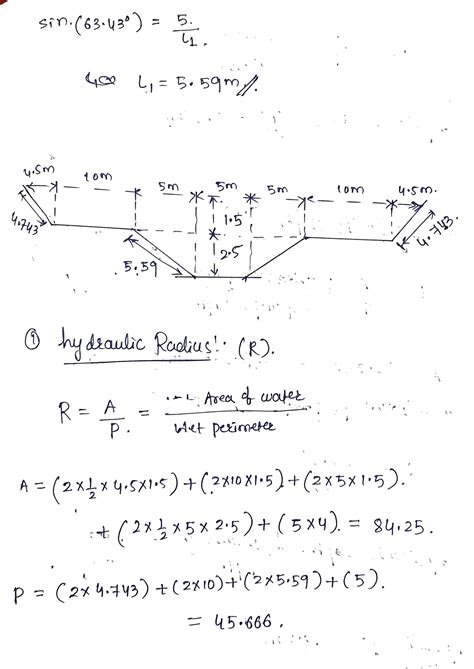 sin.(63.43°) = 5/L₁.
L₁ = 5.59m//.
4.5m 10m 5m 5m 5m 10m 4.5m.
4.743 5.59 1.5 2.5 4.743.
① hydraulic Radius!. (R).
R = A/P. = Area of water / wet perimeter
A = (2×½×4.5×1.5)+(2×10×1.5)+(2×5×1.5).
+(2×½×5×2.5)+(5×4). = 84.25.
P = (2×4.743)+(2×10)+(2×5.59)+(5).
= 45.666.